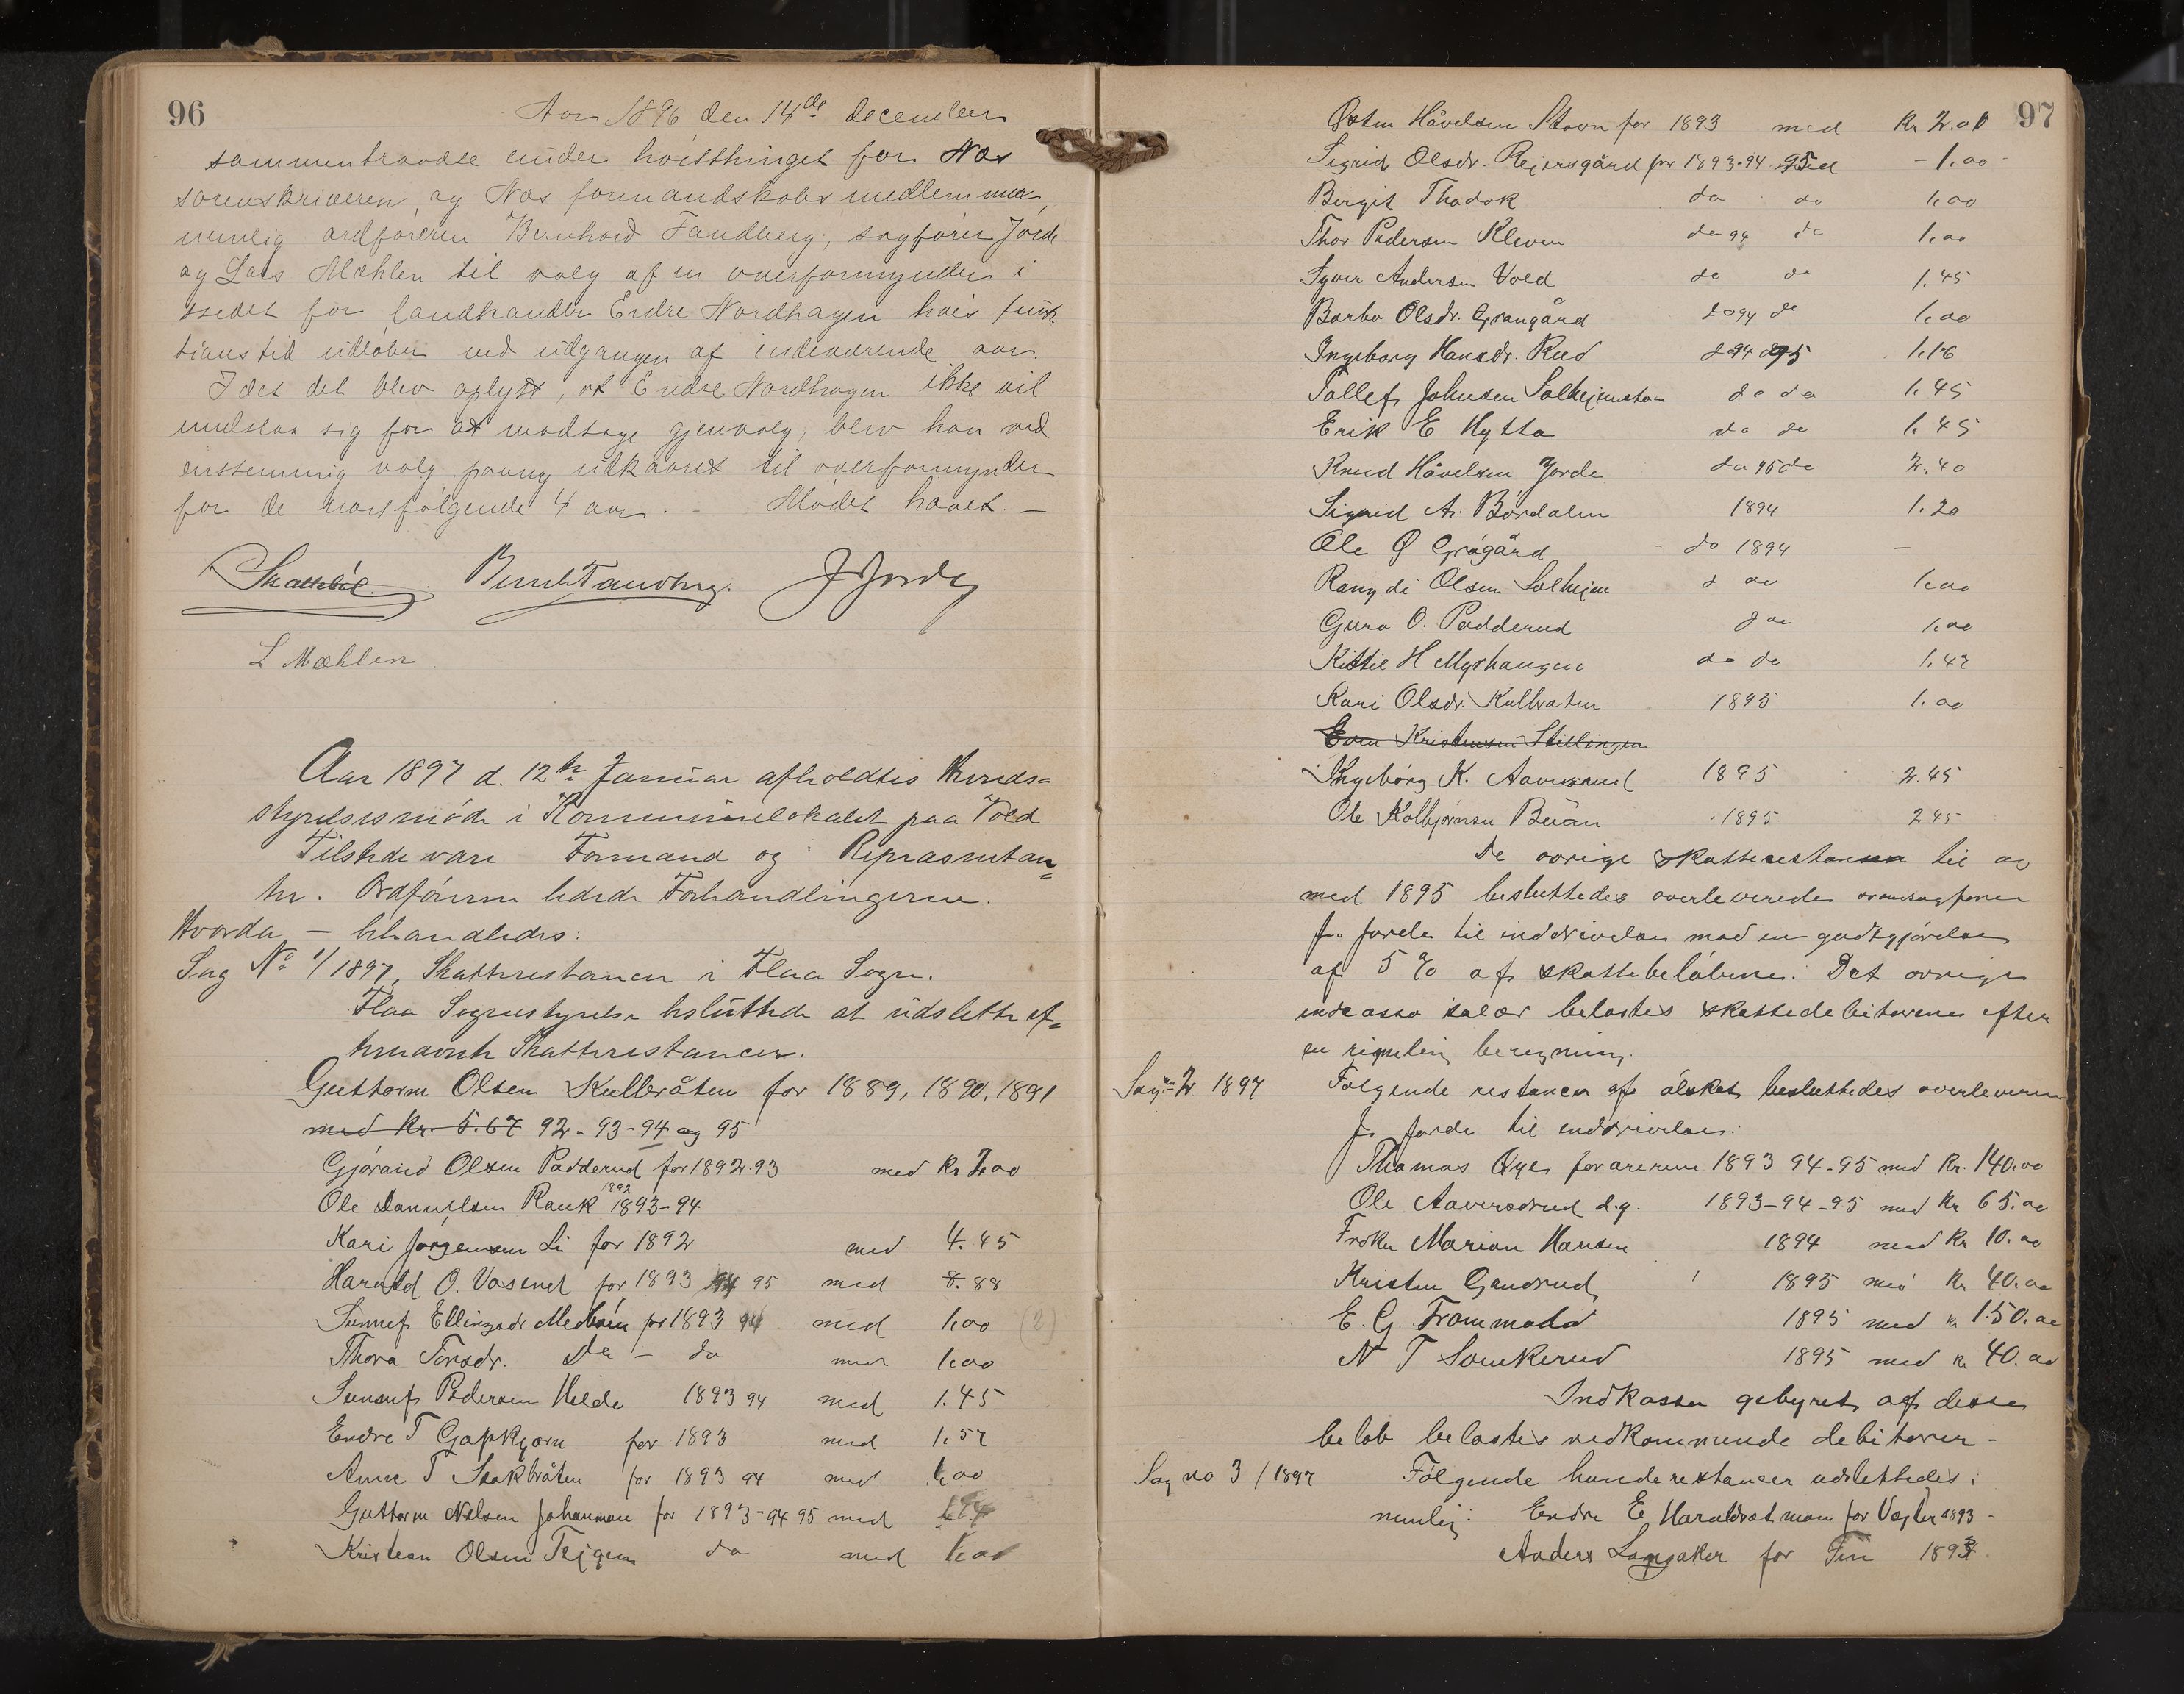 96
Aar 1896 den 14de december
sammentraadte under høstthinget for Næs
sorenskriveren, og Næs formandskabs medlemmer,
nemlig ordføreren Bernhard Tandberg, sagfører Jorde
og Lars Mæhlen til valg af en overformynder i
stedet for landhandler Endre Nordhagen hvis funk
tionstid udløber ved udgangen af indeværende aar.
Idet det blev oplyst, at Endre Nordhagen ikke vil
undslaa sig for at modtage gjenvalg, blev han ved
enstemmig valg paany udkaaret til overformynder
for de næstfølgende 4 aar. - Mødet hævet. -
Bernh Tandberg. J Jorde
L Mæhlen
Aar 1897 d. 12te Januar afholdtes Herreds=
styrelsesmøde i Kommunelokalet paa Vold
Tilstede vare Formænd og Repræsentan=
ter. Ordføreren ledede Forhandlingerne.
Hvorda - behandledes:
Sag No 1/1897, Skatterestancer i Flaa Sogn.
Flaa Sognestyrelse besluttede at udslette ef=
ternævnte Skatterestancer.
Guttorm Olsen Kulbråten for 1889, 1890, 1891
med Kr. 5.67 92 - 93 - 94 og 95
Gjørand Olsen Padderud for 1892-93 med Kr 2.00
Ole Danielsen Rauk 1892 1893-94
Kari Jørgensen Li for 1892 med 4.45
Harald O. Vasend for 1893 94 95 med 8.88
Sunnef Ellingsdr. Medbøen for 1893 94 med 1.00 (2)
Thora Torsdr. Da - do med 1.00
Sunnef Pedersen Hilde 1893 94 med 1.45
Endre T Gapkjørn for 1893 med 1.52
Anne T Stokbråten for 1893 94 med 1.00
Guttorm Nilsen Johannau for 1893-94 95 med
Kristian Olsen Trejgen do med 1.00
97
Østen Håvelsen Stavn for 1893 med Kr 2.00
Sigrid Olsdr. Rejersgård for 1893-94 95 - 1.00 -
Bergit Thodok do do 1.00
Thor Pedersen Kleven do 94 do 1.00
Syver Andersen Vold do do 1.45
Barbo Olsdr. Grangård do 94 do 1.00
Ingeborg Hansdr. Rud do 94 95 1.16
Tollef Johnsen Solhejmstøen do do 1.45
Erik E Hytta do do 1.45
Knud Håvelsen Jorde do 95 do 2.40
Sigrid A. Børdalen 1894 1.20
Ole Ø Grøgård - do 1894 -
Rangdi Olsen Solhejm do 1.00
Guro O. Padderud do 1.00
Kittil H Myrhaugen do do 1.42
Kari Olsdr. Kulbraten 1895 1.00
Even Kristensen Stillingen
Ingebørg K. Aavesrud 1895 2.45
Ole Kolbjørnsen Buin 1895 2.45
De øvrige skatterestancer til og
med 1895 besluttedes overleverede oversagfører
J. Jorde til inddrivelse mod en godtgjørelse
af 5 % af skattebeløbene. Det øvrige
incasso salær belastes skattedebitorene efter
en rimelig beregning.
Sag no 2 1897 Følgende restancer af ølskat besluttedes overleveret
J. Jorde til inddrivelse:
Thomas Øye for årerne 1893 94-95 med Kr. 140.00
Ole Aavesrud d.y. 1893-94-95 med Kr 65.00
Frøken Marian Hansen 1894 med Kr 10.00
Kristen Gandrud 1895 med Kr 40.00
E. G. Trommald 1895 med K 150.00
N T Sønkerud 1895 med K 40.00
Indkasso gebyret af disse
beløb belastes vedkommende debitorer -
Sag no 3 / 1897 Følgende hunderestancer udslettedes:
nemlig: Endre E Haraldset møn for Vegter 1893 -
Anders Langaker for Tin 1893.